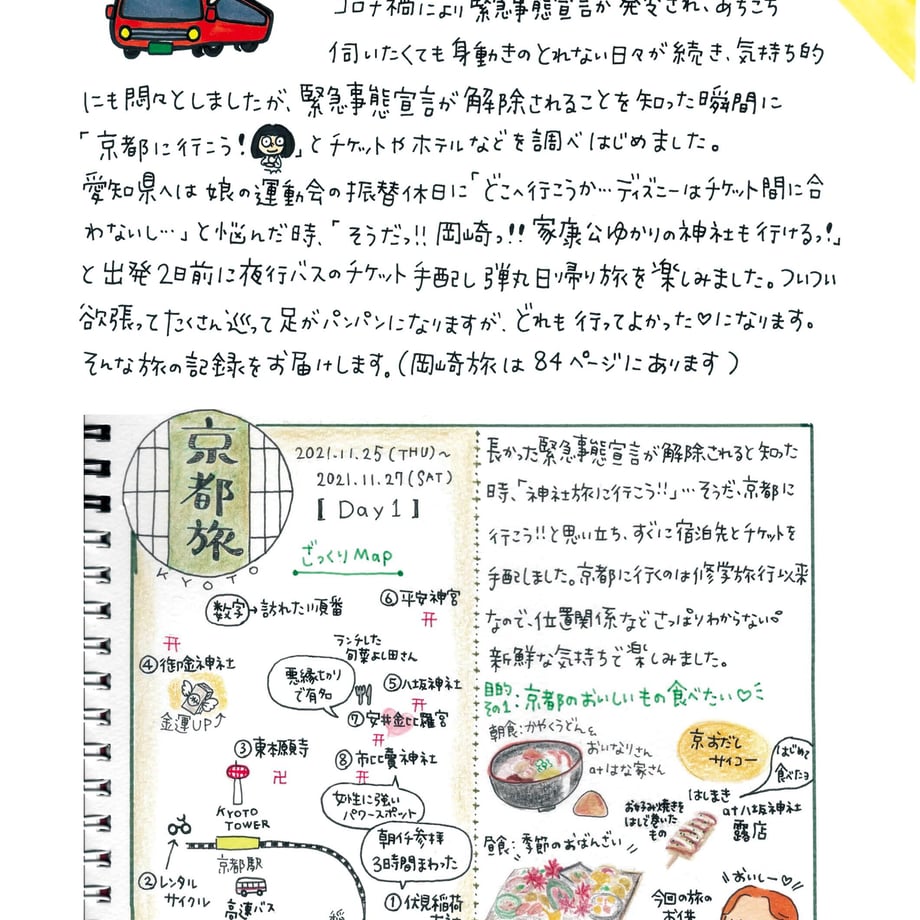 コロナ禍により緊急事態宣言が発令され、あちこち
伺いたくても身動きのとれない日々が続き、気持ち的
にも悶々としましたが、緊急事態宣言が解除されることを知った瞬間に
「京都に行こう!」とチケットやホテルなどを調べはじめました。
愛知県へは娘の運動会の振替休日に「どこへ行こうか…ディズニーはチケット間に合
わないし…」と悩んだ時、「そうだっ!!岡崎っ!!家康公ゆかりの神社も行けるっ!」
と出発2日前に夜行バスのチケット手配し弾丸日帰り旅を楽しみました。ついつい
欲張ってたくさん巡って足がパンパンになりますが、どれも行ってよかった♡になります。
そんな旅の記録をお届けします。(岡崎旅は84ページにあります)
京都旅
KYOTO
2021.11.25(THU)~
2021.11.27(SAT)
[Day1]
ざっくりMap
数字→訪れた順番
⑥平安神宮
ランチした
旬菜よし田さん
④御金神社
金運UP↑
悪縁切り
で有名
⑤八坂神社
⑦安井金比羅宮
③東本願寺
⑧市比賣神社
KYOTO
TOWER
女性に強い
パワースポット
京都駅
朝イチ参拝
3時間まわった
②レンタル
サイクル
高速バス
①伏見稲荷
長かった緊急事態宣言が解除されると知った
時、「神社旅に行こう!!」…そうだ、京都に
行こう!!と思い立ち、すぐに宿泊先とチケットを
手配しました。京都に行くのは修学旅行以来
なので、位置関係などさっぱりわからない。
新鮮な気持ちで楽しみました。
目的その1:京都のおいしいもの食べたい♡
朝食:かやくうどんと
おいなりさん
atはな家さん
京おだし
サイコー
はじめて
食べたョ
お好み焼きを
はしで巻いた
もの
はしまき
at八坂神社
露店
昼食:季節のおばんざい
おいしー♡
今回の旅の
お供